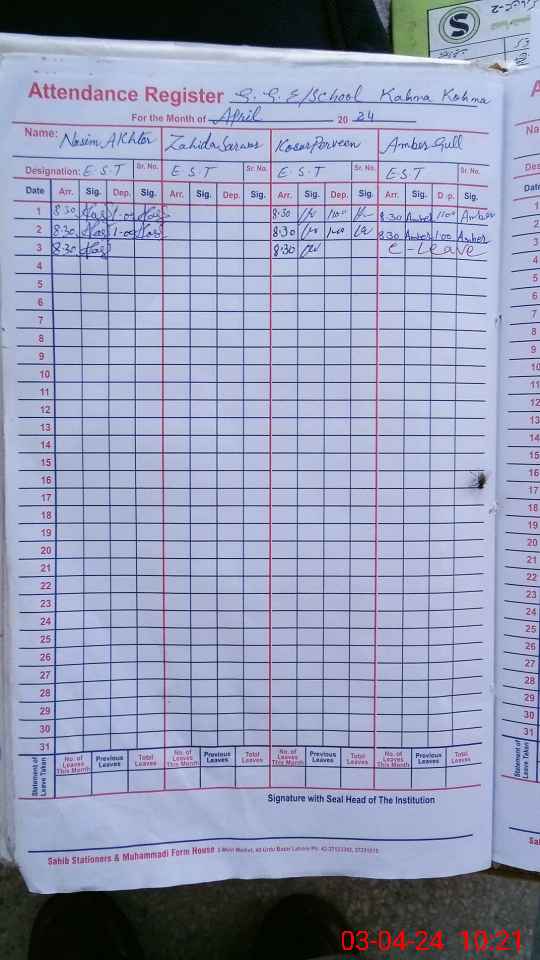 Attendance Register G. G. E/School Kahna Kohna
For the Month of April 20 24
Name: Nasim Akhtar Zahida Sarwar Kosar Parveen Amber Gull
Designation: E.S.T Sr. No. E.S.T Sr. No. E.S.T Sr. No. E.S.T Sr. No.
Date Arr. Sig. Dep. Sig. Arr. Sig. Dep. Sig. Arr. Sig. Dep. Sig. Arr. Sig. Dep. Sig.
1 8:30 1:00 8:30 1:00 8:30 Amber 1:00 Amber
2 8:30 1:00 8:30 1:00 8:30 Amber 1:00 Amber
3 8:30 8:30 e-Leave
4
5
6
7
8
9
10
11
12
13
14
15
16
17
18
19
20
21
22
23
24
25
26
27
28
29
30
31
Statement of Leave Taken No. of Leaves This Month Previous Leaves Total Leaves No. of Leaves This Month Previous Leaves Total Leaves No. of Leaves This Month Previous Leaves Total Leaves No. of Leaves This Month Previous Leaves Total Leaves
Signature with Seal Head of The Institution
Sahib Stationers & Muhammadi Form House
03-04-24 10:21